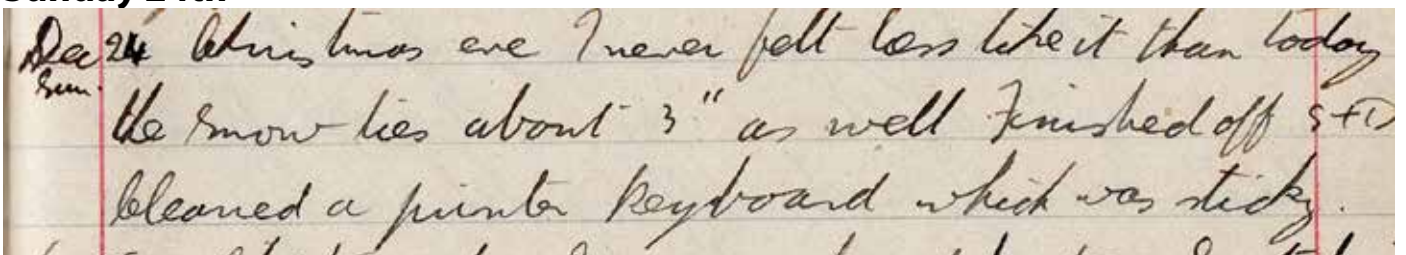 Dec 24 Christmas eve I never felt less like it than today
Sun. the snow lies about 3" as well Finished off S+D
Cleaned a printer keyboard which was sticky.